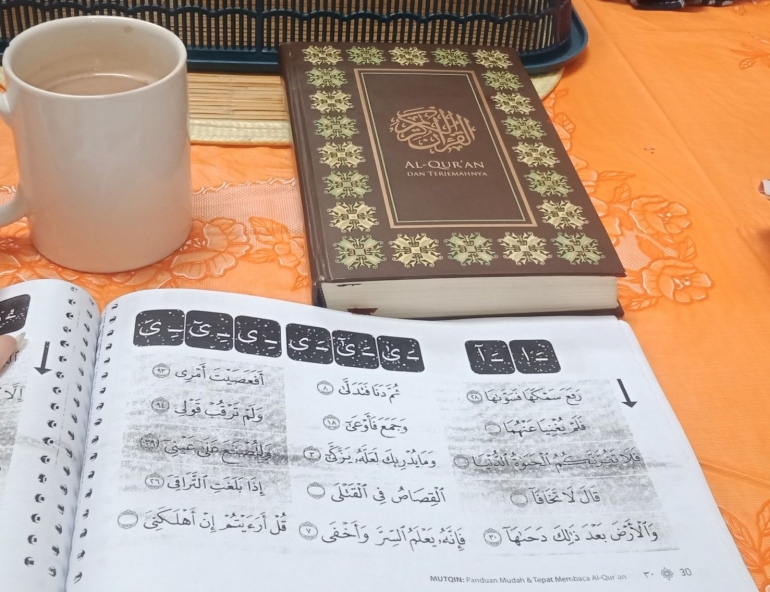 القرآن الكريم
AL-QUR'AN
DAN TERJEMAHNYA
رَفَعَ سَمْكَهَا فَسَوَّىٰهَا ٢٨
فَلَمْ يُغْنِيَا عَنْهُمَا
فَلَا تَغُرَّنَّكُمُ ٱلْحَيَوٰةُ ٱلدُّنْيَا
قَالَ لَا تَخَافَا
وَٱلْأَرْضَ بَعْدَ ذَٰلِكَ دَحَىٰهَآ ٣٠
ثُمَّ دَنَا فَتَدَلَّىٰ ٨
وَجَمَعَ فَأَوْعَىٰٓ ١٨
وَمَا يُدْرِيكَ لَعَلَّهُۥ يَزَّكَّىٰٓ ٣
ٱلْقِصَاصُ فِى ٱلْقَتْلَى
فَإِنَّهُۥ يَعْلَمُ ٱلسِّرَّ وَأَخْفَى ٧
أَفَعَصَيْتَ أَمْرِى ٩٣
وَلَمْ تَرْقُبْ قَوْلِى ٩٤
وَلِتُصْنَعَ عَلَىٰ عَيْنِىٓ ٣٩
إِذَا بَلَغَتِ ٱلتَّرَاقِىَ ٢٦
قُلْ أَرَءَيْتُمْ إِنْ أَهْلَكَنِىَ
MUTQIN: Panduan Mudah & Tepat Membaca Al-Qur'an ٣٠ 30